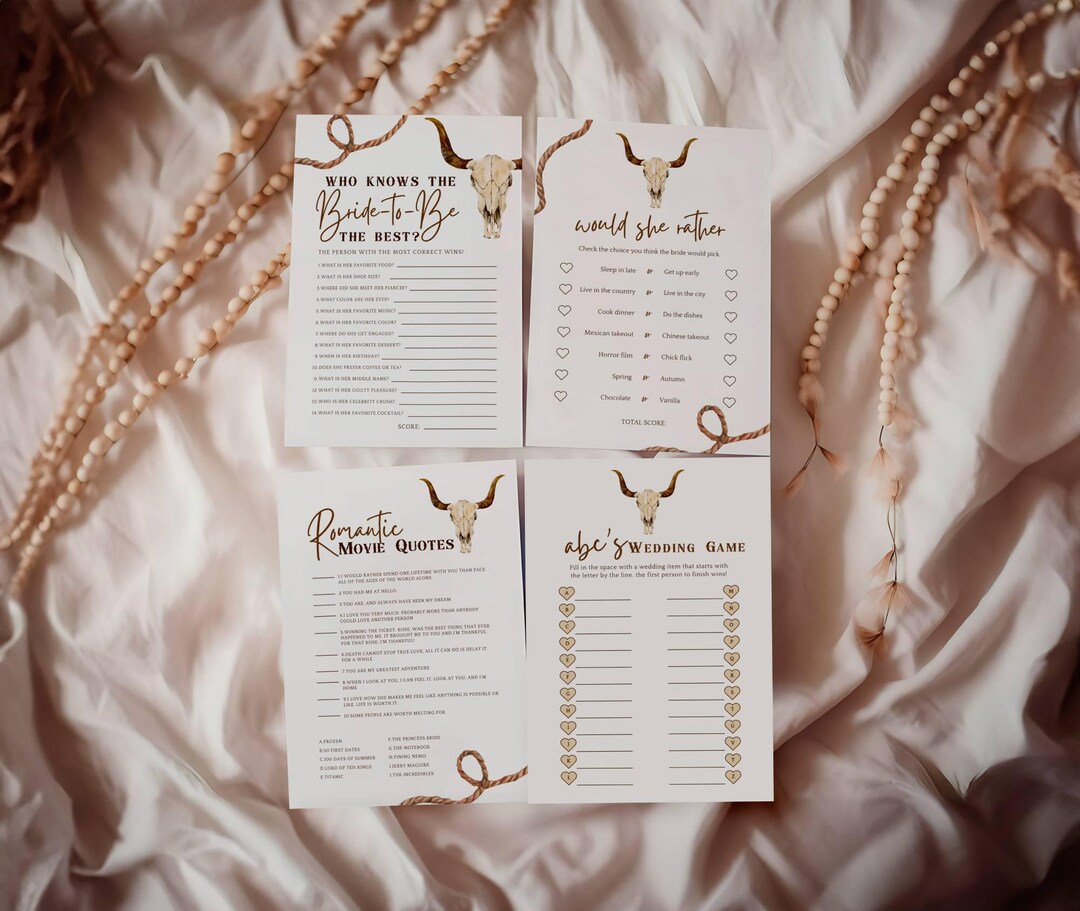 WHO KNOWS THE
Bride-to-Be
THE BEST?
THE PERSON WITH THE MOST CORRECT WINS!
1.WHAT IS HER FAVORITE FOOD?
2.WHAT IS HER SHOE SIZE?
3.WHERE DID SHE MEET HER FIANCEE?
4.WHAT COLOR ARE HER EYES?
5.WHAT IS HER FAVORITE MUSIC?
6.WHAT IS HER FAVORITE COLOR?
7.WHERE DO SHE GET ENGAGED?
8.WHAT IS HER FAVORITE DESSERT?
9.WHEN IS HER BIRTHDAY?
10.DOES SHE PREFER COFFEE OR TEA?
11.WHAT IS HER MIDDLE NAME?
12.WHAT IS HER GUILTY PLEASURE?
13.WHO IS HER CELEBRITY CRUSH?
14.WHAT IS HER FAVORITE COCKTAIL?
SCORE:
would she rather
Check the choice you think the bride would pick.
Sleep in late or Get up early
Live in the country or Live in the city
Cook dinner or Do the dishes
Mexican takeout or Chinese takeout
Horror film or Chick flick
Spring or Autumn
Chocolate or Vanilla
TOTAL SCORE:
Romantic
MOVIE QUOTES
1.I WOULD RATHER SPEND ONE LIFETIME WITH YOU THAN FACE
ALL OF THE AGES OF THE WORLD ALONE.
2.YOU HAD ME AT HELLO.
3.YOU ARE, AND ALWAYS HAVE BEEN MY DREAM
4.I LOVE YOU VERY MUCH, PROBABLY MORE THAN ANYBODY
COULD LOVE ANOTHER PERSON
5.WINNING THE TICKET, ROSE, WAS THE BEST THING THAT EVER
HAPPENED TO ME. IT BROUGHT ME TO YOU AND I'M THANKFUL
FOR THAT ROSE, I'M THANKFUL!
6.DEATH CANNOT STOP TRUE LOVE, ALL IT CAN DO IS DELAY IT
FOR A WHILE
7.YOU ARE MY GREATEST ADVENTURE
8.WHEN I LOOK AT YOU, I CAN FEEL IT. LOOK AT YOU, AND I'M
HOME
9.I LOVE HOW SHE MAKES ME FEEL LIKE ANYTHING IS POSSIBLE OR
LIKE, LIFE IS WORTH IT.
10.SOME PEOPLE ARE WORTH MELTING FOR
A.FROZEN
B.50 FIRST DATES
C.500 DAYS OF SUMMER
D.LORD OF TEH RINGS
E.TITANIC
F.THE PRINCESS BRIDE
G.THE NOTEBOOK
H.FINING NEMO
I.JERRY MAGUIRE
J.THE INCREDIBLES
abc's WEDDING GAME
Fill in the space with a wedding item that starts with
the letter by the line. the first person to finish wins!
A
B
C
D
E
F
G
H
I
J
K
L
M
N
O
P
Q
R
S
T
U
V
Y
Z